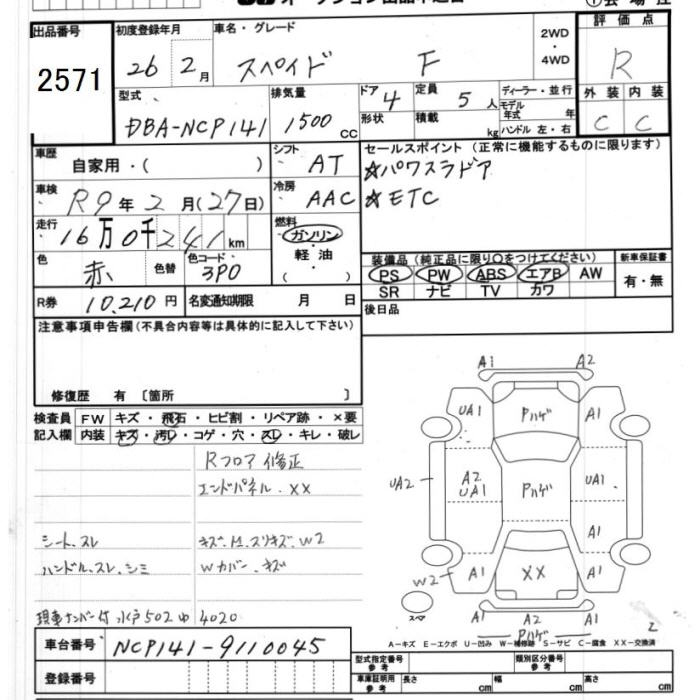 出品番号 初度登録年月 車名・グレード 2WD・4WD 評価点
2571 26年 2月 スペイド F R
型式 排気量 ドア 定員 ディーラー・並行 外装 内装
DBA-NCP141 1500cc 4 5人 モデル年式 年 C C
形状 積載 kg ハンドル 左・右
車歴 自家用・( ) シフト AT セールスポイント(正常に機能するものに限ります)
☆パワスラドア
車検 R9年2月(27日) 冷房 AAC ☆ETC
走行 16万0千241km 燃料 ガソリン・軽油・( )
色 赤 色替 色コード 3P0 装備品(純正品に限り○をつけてください) 新車保証書
PS PW ABS エアB AW 有・無
SR ナビ TV カワ
R券 10,210円 名変通知期限 月 日 後日品
注意事項申告欄(不具合内容等は具体的に記入して下さい)
修復歴 有 〔箇所 〕
検査員 FW キズ・飛石・ヒビ割・リペア跡・×要
記入欄 内装 キズ・汚レ・コゲ・穴・スレ・キレ・破レ
Rフロア修正
エンドパネル.XX
シート.スレ キズ.凹.スリキズ.W2
ハンドル.スレ.シミ Wカバー.キズ
現車ナンバー付 水戸502ゆ4020
A1 A2
UA1 Pハゲ A1
UA2 A2 UA1 Pハゲ UA1
A1
W2 A1 XX A1
スペア A1 A2 A1
Pハゲ 2
A-キズ E-エクボ U-凹み W-補修跡 S-サビ C-腐食 XX-交換済
車台番号 NCP141-9110045
型式指定番号 参考 類別区分番号 参考
登録番号 車庫証明用 参考 長さ cm 幅 cm 高さ cm